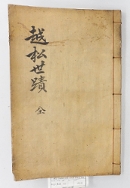 越松世蹟 全